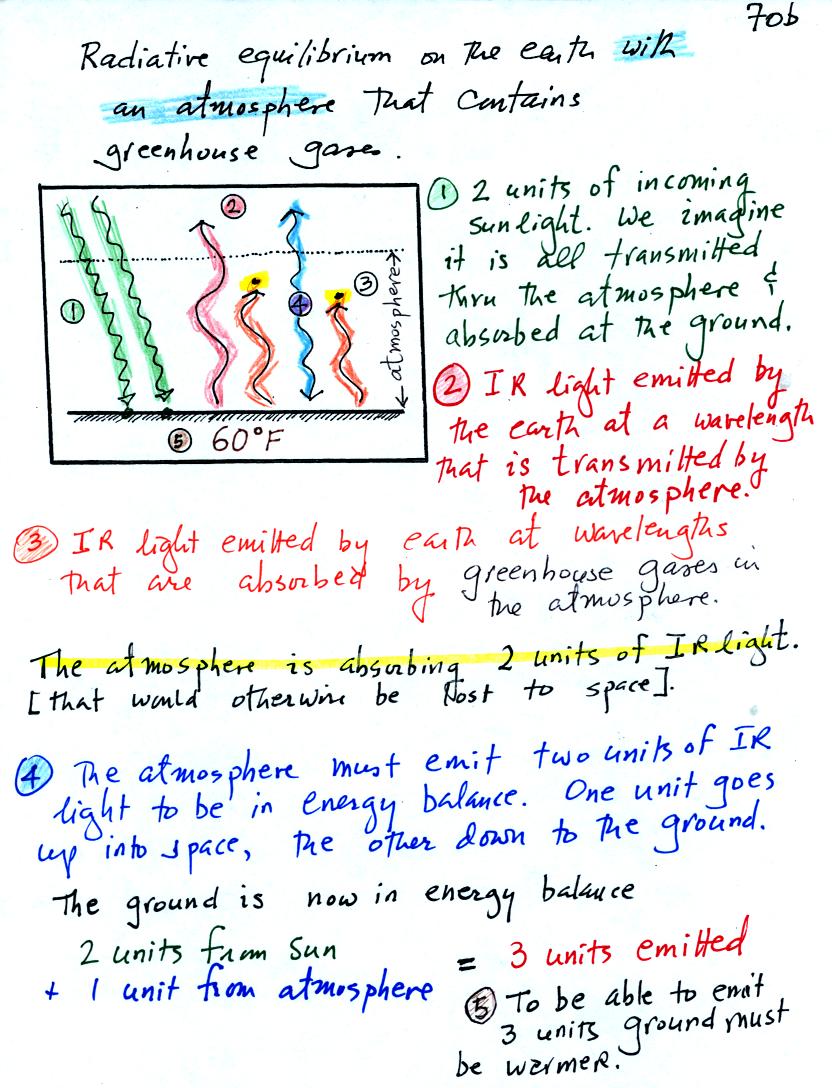 70b
Radiative equilibrium on the earth with
an atmosphere that contains
greenhouse gases.
① 2 units of incoming
sunlight. We imagine
it is all transmitted
thru the atmosphere &
absorbed at the ground.
② IR light emitted by
the earth at a wavelength
that is transmitted by
the atmosphere.
①
②
③
④
←atmosphere→
⑤ 60°F
③ IR light emitted by earth at wavelengths
that are absorbed by greenhouse gases in
the atmosphere.
The atmosphere is absorbing 2 units of IR light.
[that would otherwise be lost to space].
④ The atmosphere must emit two units of IR
light to be in energy balance. One unit goes
up into space, the other down to the ground.
The ground is now in energy balance
2 units from Sun
+ 1 unit from atmosphere
= 3 units emitted
⑤ To be able to emit
3 units ground must
be warmer.